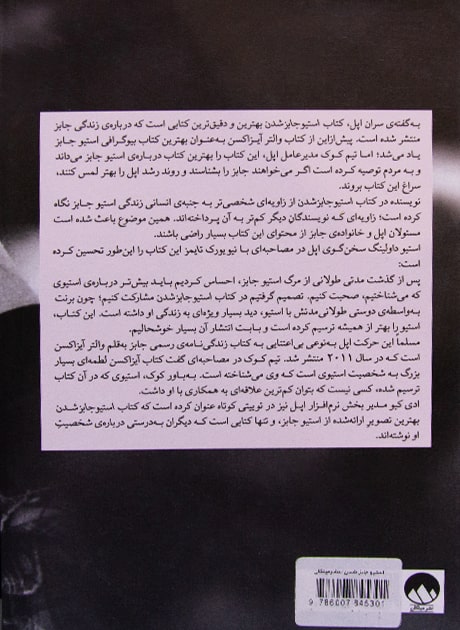 به‌گفته‌ی سران اپل، کتاب استیوجابزشدن بهترین و دقیق‌ترین کتابی است که درباره‌ی زندگی جابز
منتشر شده است. پیش‌ازاین از کتاب والتر آیزاکسن به‌عنوان بهترین کتاب بیوگرافی استیو جابز
یاد می‌شد؛ اما تیم کوک مدیرعامل اپل، این کتاب را بهترین کتاب درباره‌ی استیو جابز می‌داند
و به مردم توصیه کرده است اگر می‌خواهند جابز را بشناسند و روند رشد اپل را بهتر لمس کنند،
سراغ این کتاب بروند.
نویسنده در کتاب استیوجابزشدن از زاویه‌ای شخصی‌تر به جنبه‌ی انسانی زندگی استیو جابز نگاه
کرده است؛ زاویه‌ای که نویسندگان دیگر کم‌تر به آن پرداخته‌اند. همین موضوع باعث شده است
مسئولان اپل و خانواده‌ی جابز از محتوای این کتاب بسیار راضی باشند.
استیو داولینگ سخن‌گوی اپل در مصاحبه‌ای با نیویورک تایمز این کتاب را این‌طور تحسین کرده
است:
پس از گذشت مدتی طولانی از مرگ استیو جابز، احساس کردیم باید بیش‌تر درباره‌ی استیوی
که می‌شناختیم، صحبت کنیم. تصمیم گرفتیم در کتاب استیوجابزشدن مشارکت کنیم؛ چون برنت
به‌واسطه‌ی دوستی طولانی‌مدتش با استیو، دید بسیار ویژه‌ای به زندگی او داشته است. این کتاب،
استیو را بهتر از همیشه ترسیم کرده است و بابت انتشار آن بسیار خوشحالیم.
مسلما این حرکت اپل به‌نوعی بی‌اعتنایی به کتاب زندگی‌نامه‌ی رسمی جابز به‌قلم والتر آیزاکسن
است که در سال ۲۰۱۱ منتشر شد. تیم کوک در مصاحبه‌ای گفت کتاب آیزاکسن لطمه‌ای بسیار
بزرگ به شخصیت استیوی است که وی می‌شناخته است. به‌باور کوک، استیوی که در آن کتاب
ترسیم شده، کسی نیست که بتوان کم‌ترین علاقه‌ای به همکاری با او داشت.
ادی کیو مدیر بخش نرم‌افزار اپل نیز در توییتی کوتاه عنوان کرده است که کتاب استیوجابزشدن
بهترین تصویر ارائه‌شده از استیو جابز، و تنها کتابی است که دیگران به‌درستی درباره‌ی شخصیت
او نوشته‌اند.
استیو جابز شدن
9 786007 845301
نشر میلکان